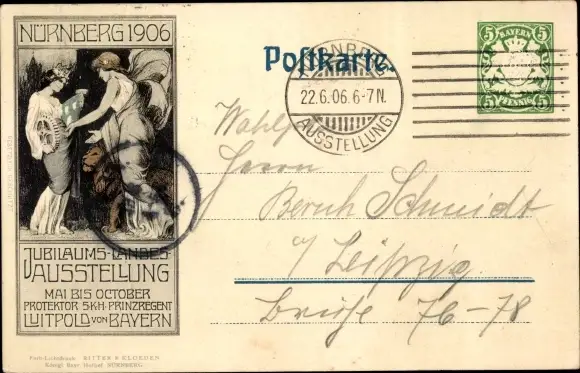 NÜRNBERG 1906
JUBILÄUMS-LANDES-
AUSSTELLUNG
MAI BIS OCTOBER
PROTEKTOR S.K.H. PRINZREGENT
LUITPOLD VON BAYERN
Postkarte.
NÜRNBERG
22.6.06.6-7N.
AUSSTELLUNG
5 BAYERN 5
5 PFENNIG 5
Herrn
Bernh Schmidt
Leipzig.
76-78
RITTER & KLOEDEN
NÜRNBERG